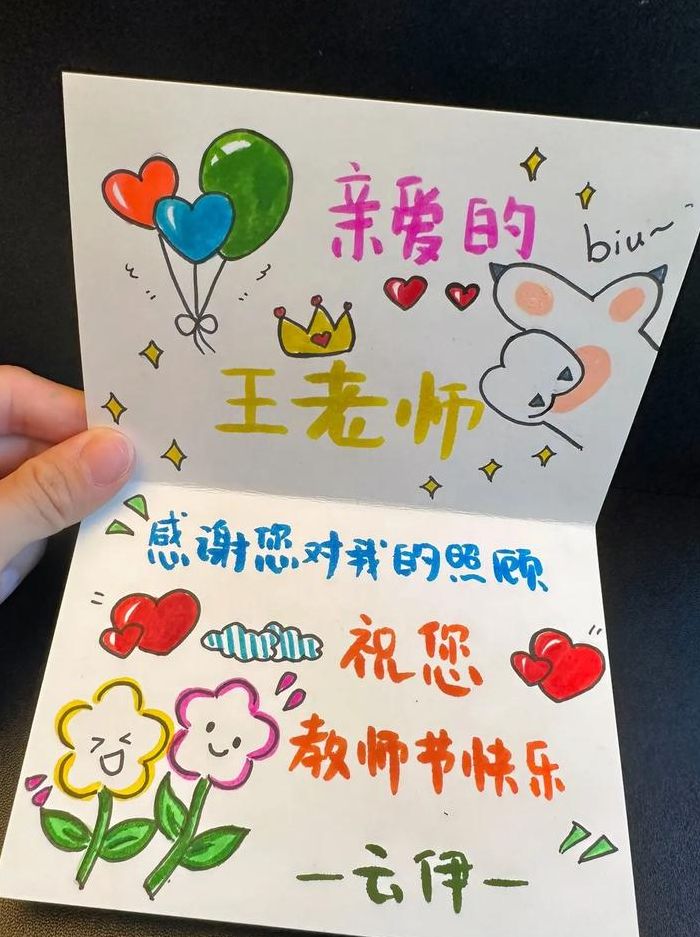 亲爱的
biu~
王老师
感谢您对我的照顾
祝您
教师节快乐
—云伊—